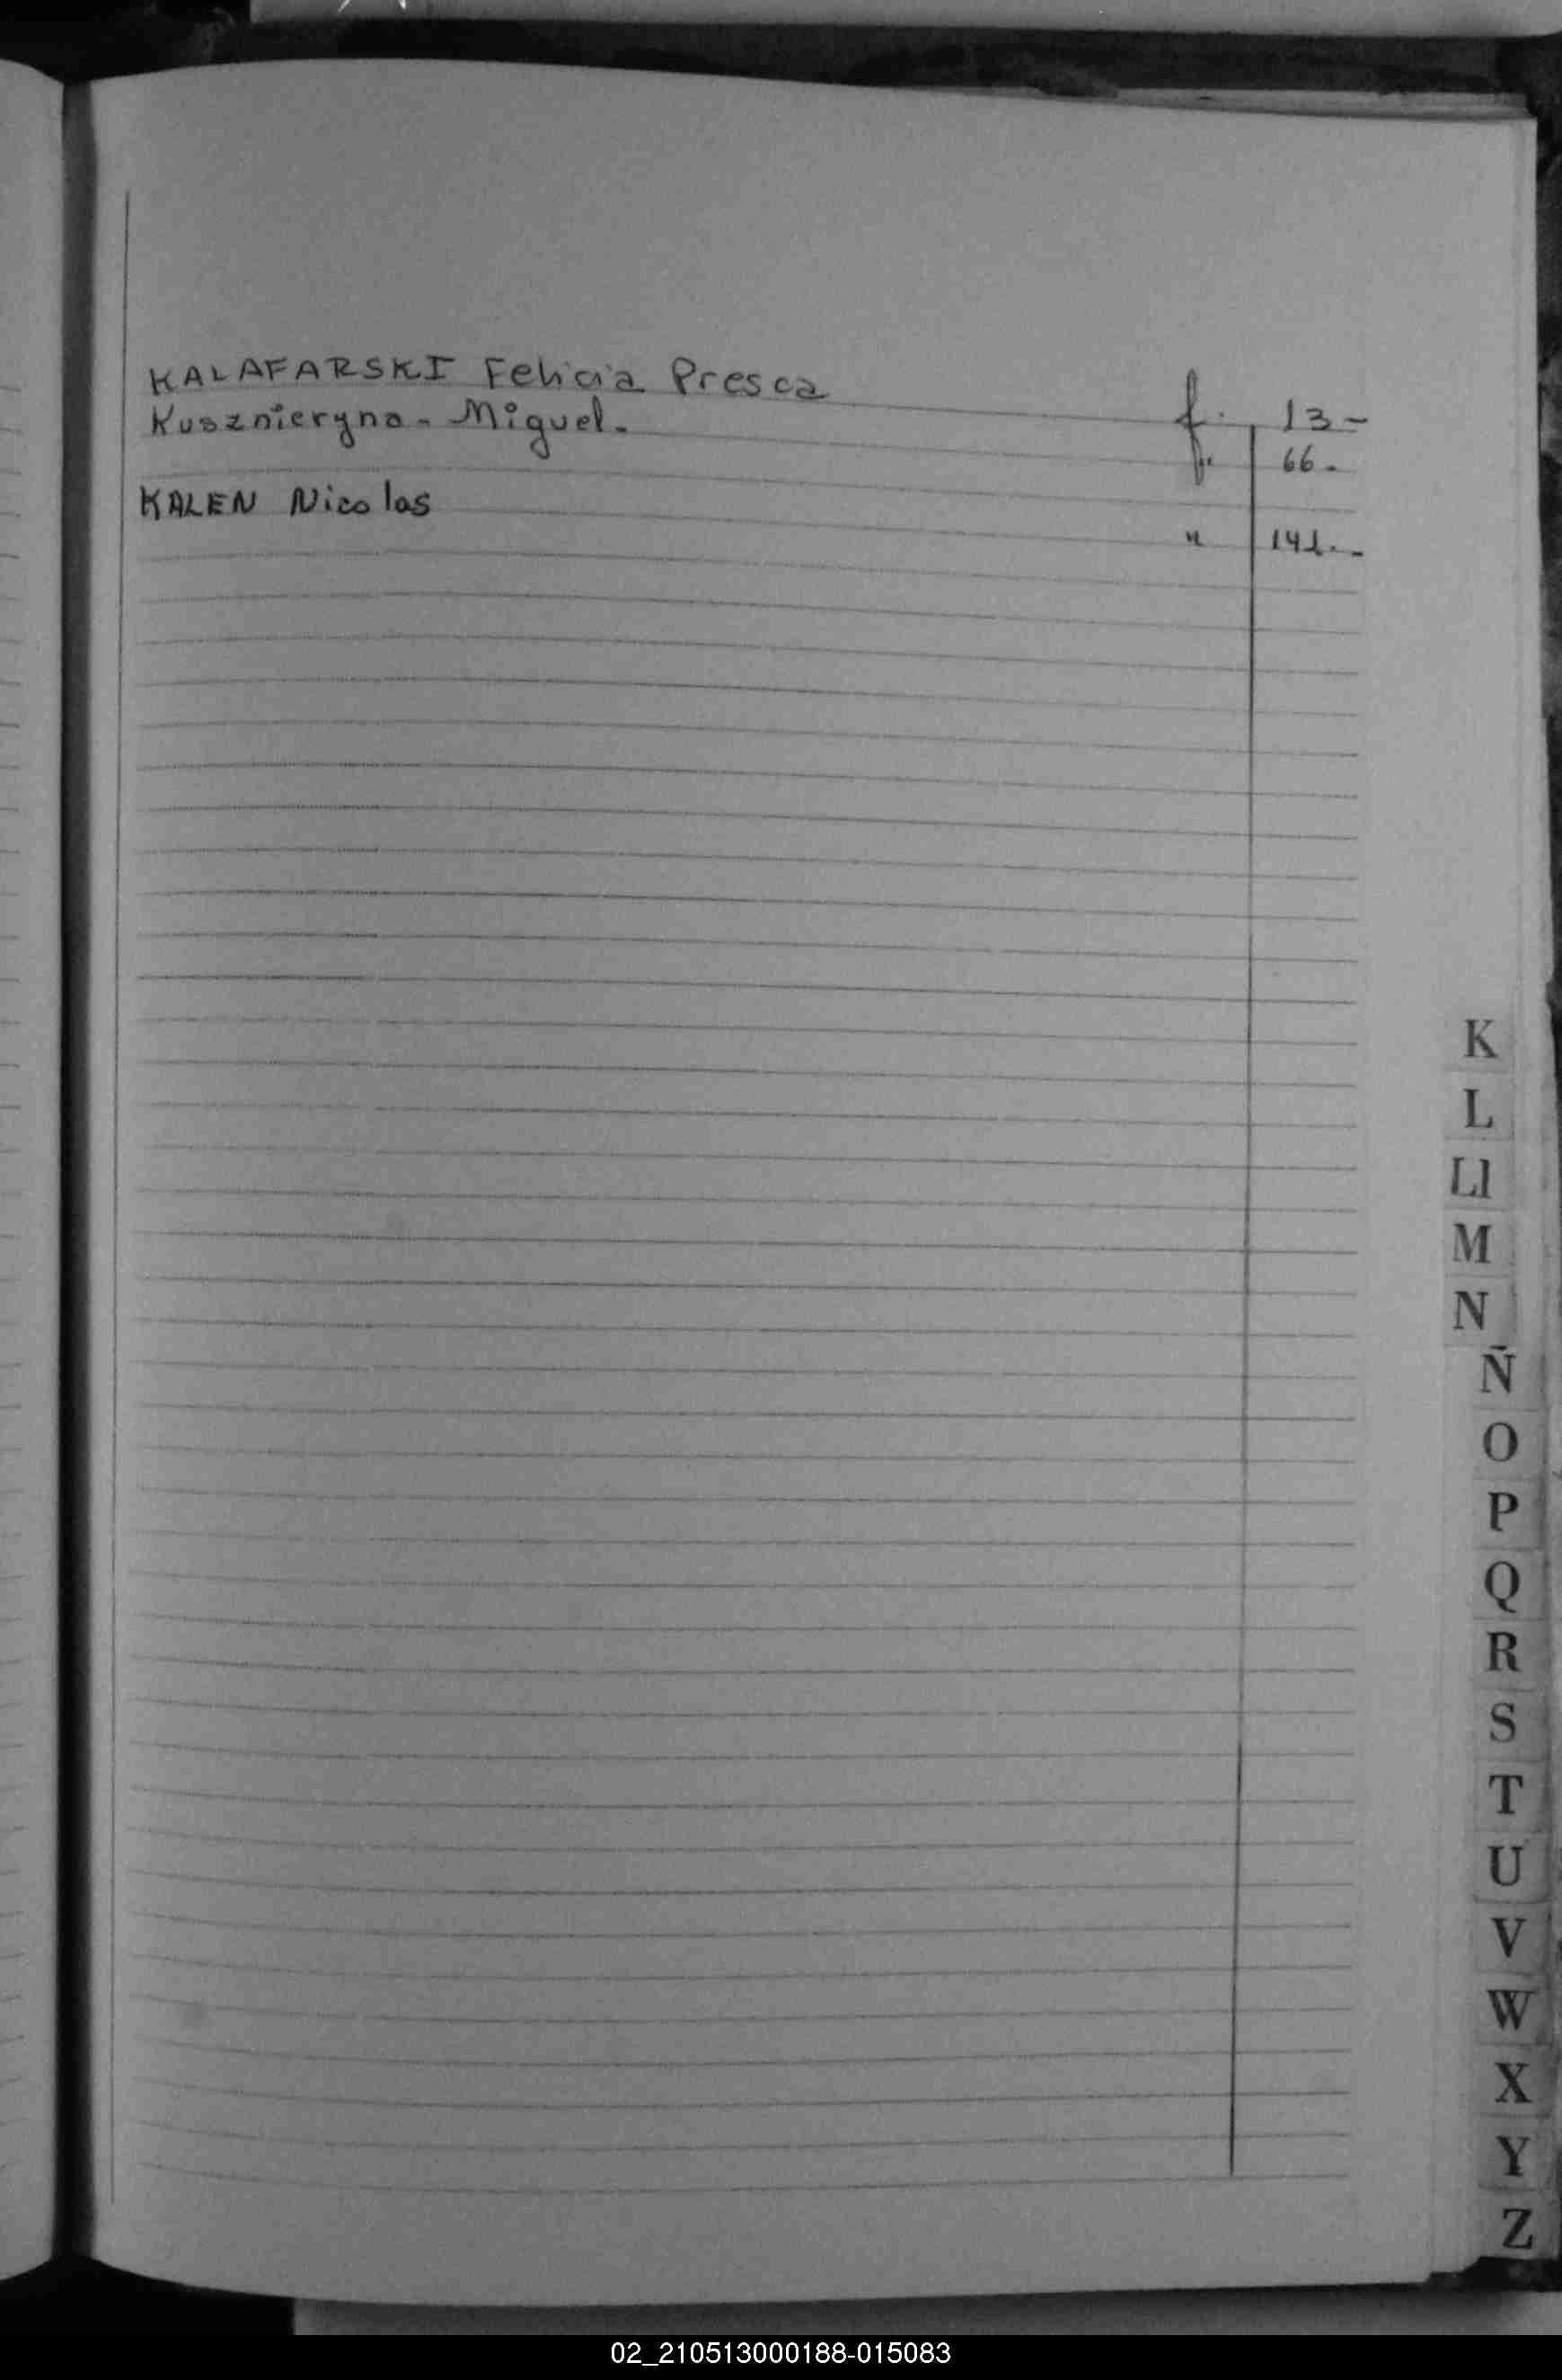 KALAFARSKI Felicia Presca f. 13-
Kusznieryna - Miguel. f. 66.
KALEN Nicolas " 141.-
K
L
Ll
M
N
Ñ
O
P
Q
R
S
T
U
V
W
X
Y
Z
02_210513000188-015083